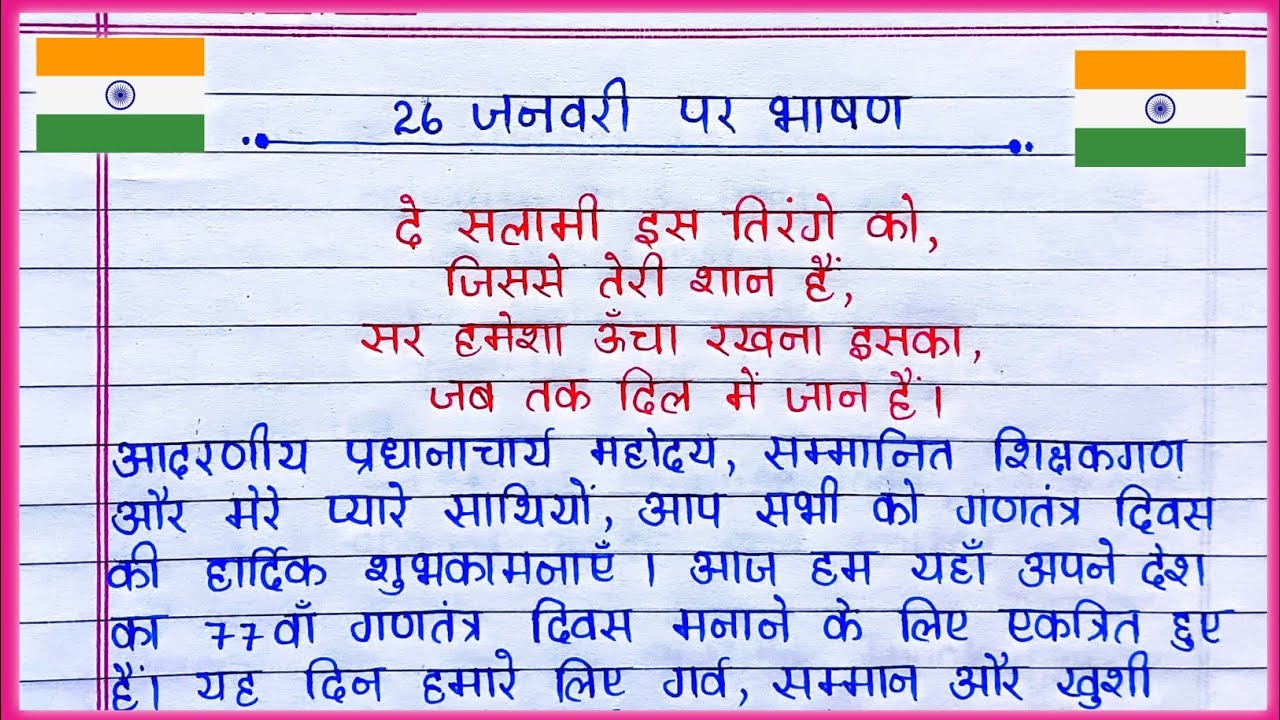 26 जनवरी पर भाषण
दे सलामी इस तिरंगे को,
जिससे तेरी शान हैं,
सर हमेशा ऊँचा रखना इसका,
जब तक दिल में जान हैं।
आदरणीय प्रधानाचार्य महोदय, सम्मानित शिक्षकगण
और मेरे प्यारे साथियों, आप सभी को गणतंत्र दिवस
की हार्दिक शुभकामनाएँ । आज हम यहाँ अपने देश
का 77वाँ गणतंत्र दिवस मनाने के लिए एकत्रित हुए
हैं। यह दिन हमारे लिए गर्व, सम्मान और खुशी